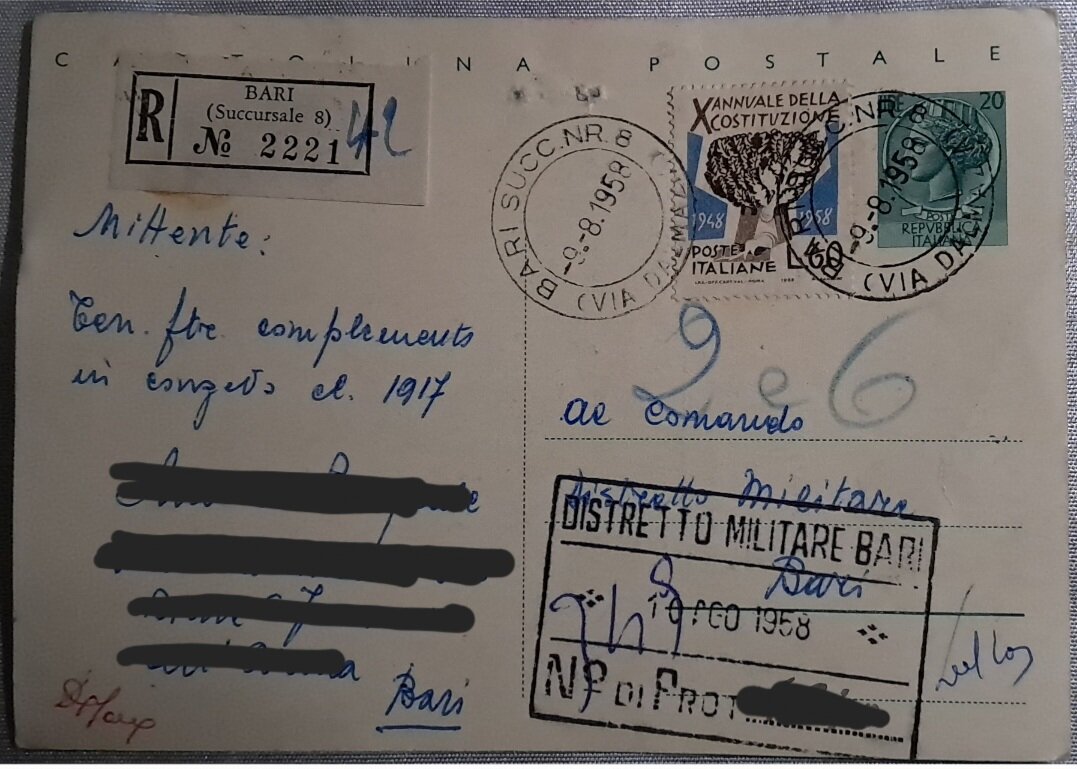 CARTOLINA POSTALE
R
BARI
(Succursale 8)
№ 2221
42
BARI SUCC. NR. 8
-9.-8.1958
(VIA DALMAZIA
X ANNUALE DELLA
COSTITUZIONE
1948 1958
POSTE
ITALIANE L.60
20
POSTE
REPVBBLICA
ITALIANA
BARI SUCC. NR. 8
-9.-8.1958
(VIA DALMAZIA
Mittente:
Ten. ftr complemento
in congedo cl. 1917
Bari
2 e 6
Al Comando
Distretto Militare
Bari
DISTRETTO MILITARE BARI
10 AGO 1958
N° DI PROT